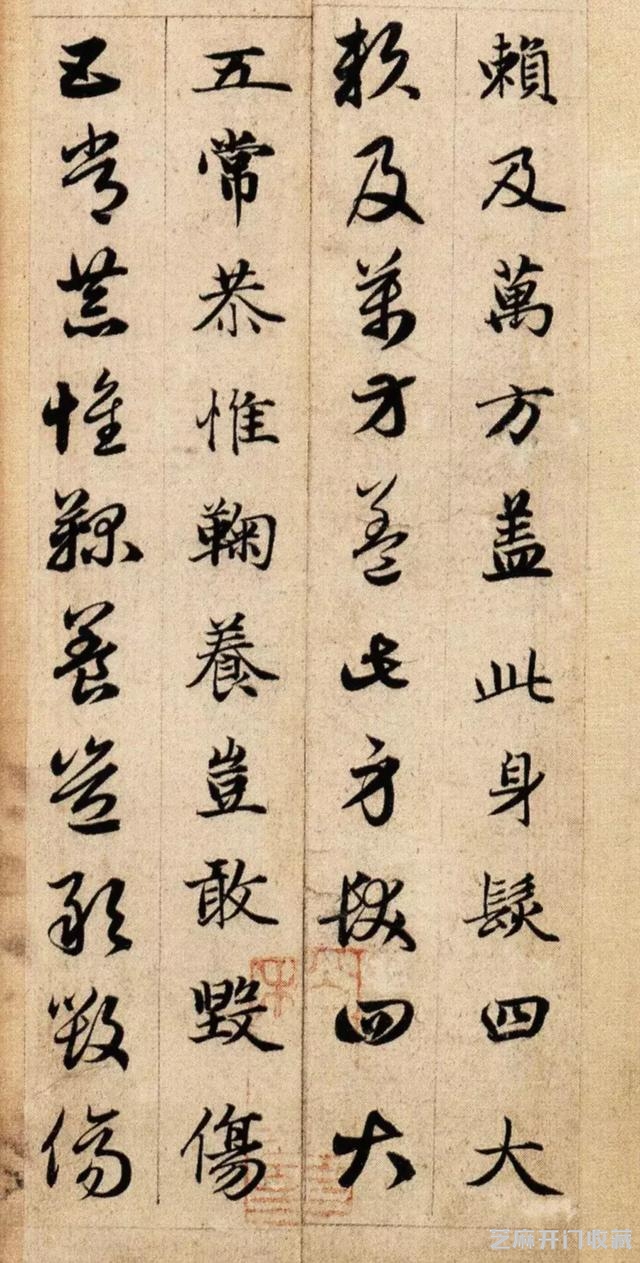 賴及萬方盖此身髮四大
賴及萬方盖此身髮四大
五常恭惟鞠養豈敢毀傷
五常恭惟鞠養豈敢毀傷
芝麻开门收藏